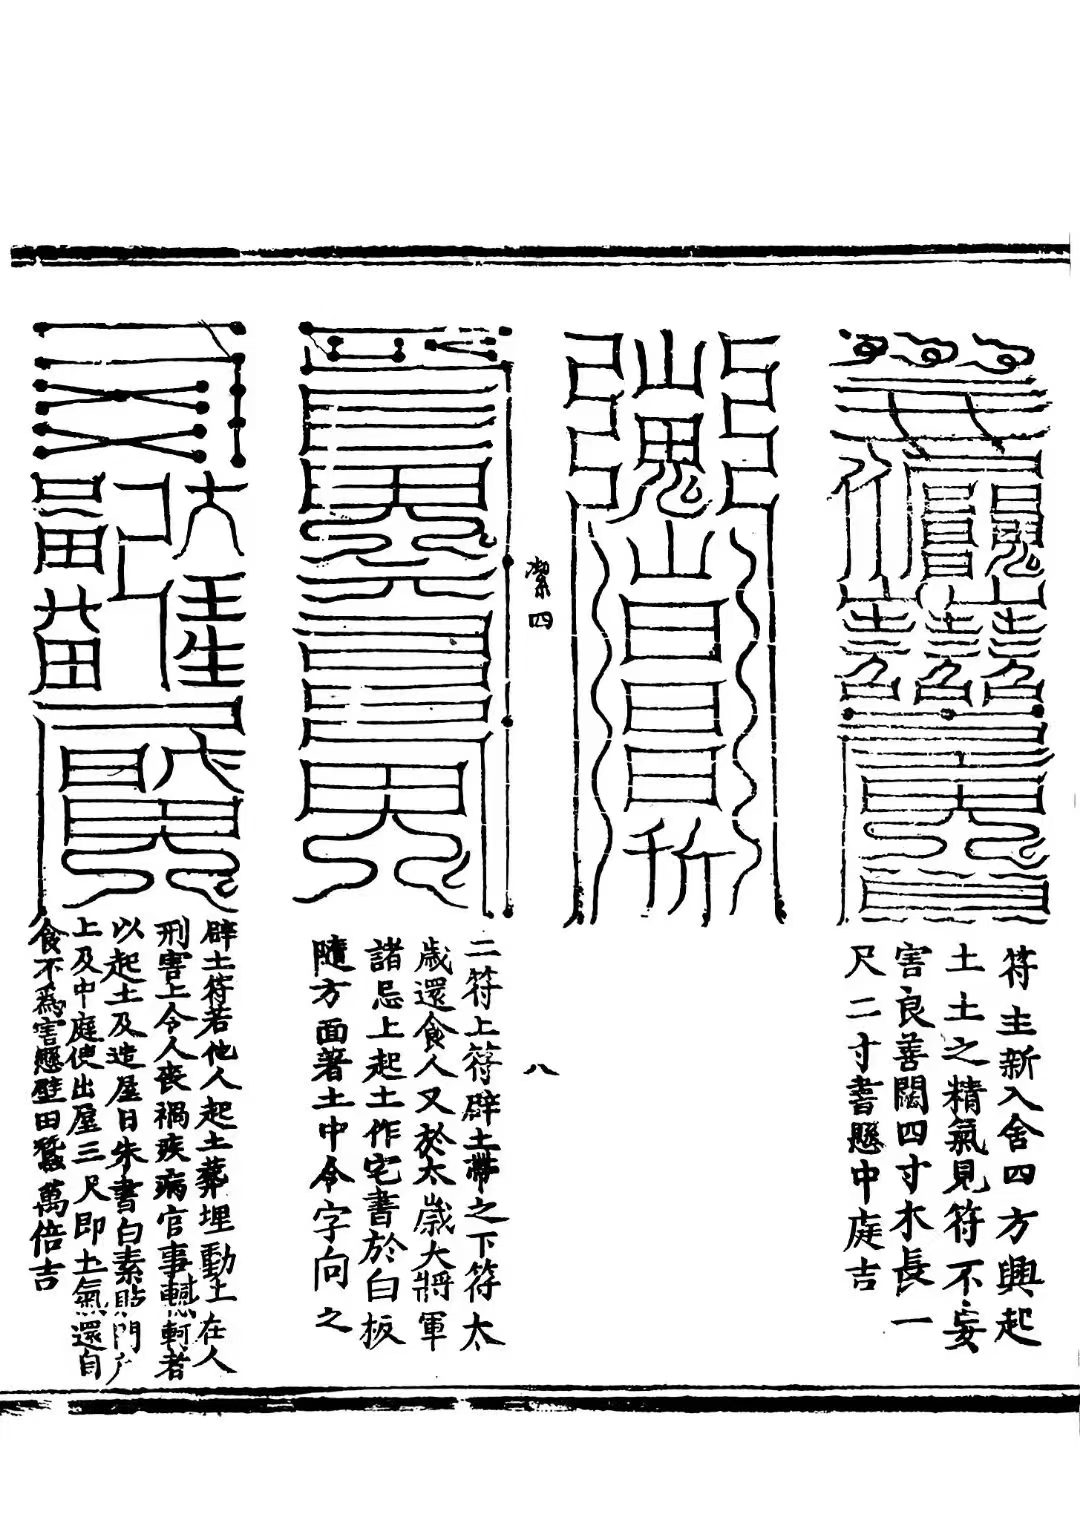 符主新入舍四方興起
土土之精氣見符不妄
害良善闊四寸木長一
尺二寸書懸中庭吉
潔四
八
二符上符辟土帶之下符太
歲還食人又於太歲大將軍
諸忌上起土作宅書於白板
隨方面著土中令字向之
辟土符若他人起土葬埋動土在人
刑害上令人喪禍疾病官事轗軻者
以起土及造屋日朱書白素貼門戶
上及中庭使出屋三尺即土氣還自
食不為害懸壁田蠶萬倍吉